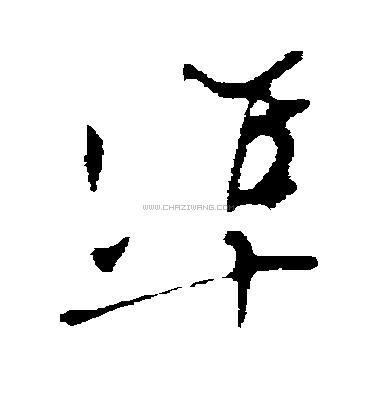 準
WWW.CHAZIWANG.COM